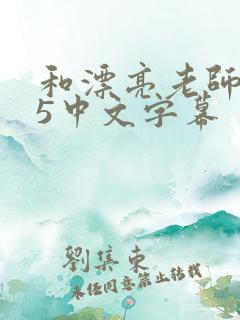 和漂亮老師
5中文字幕
劉集東
未经同意禁止转载